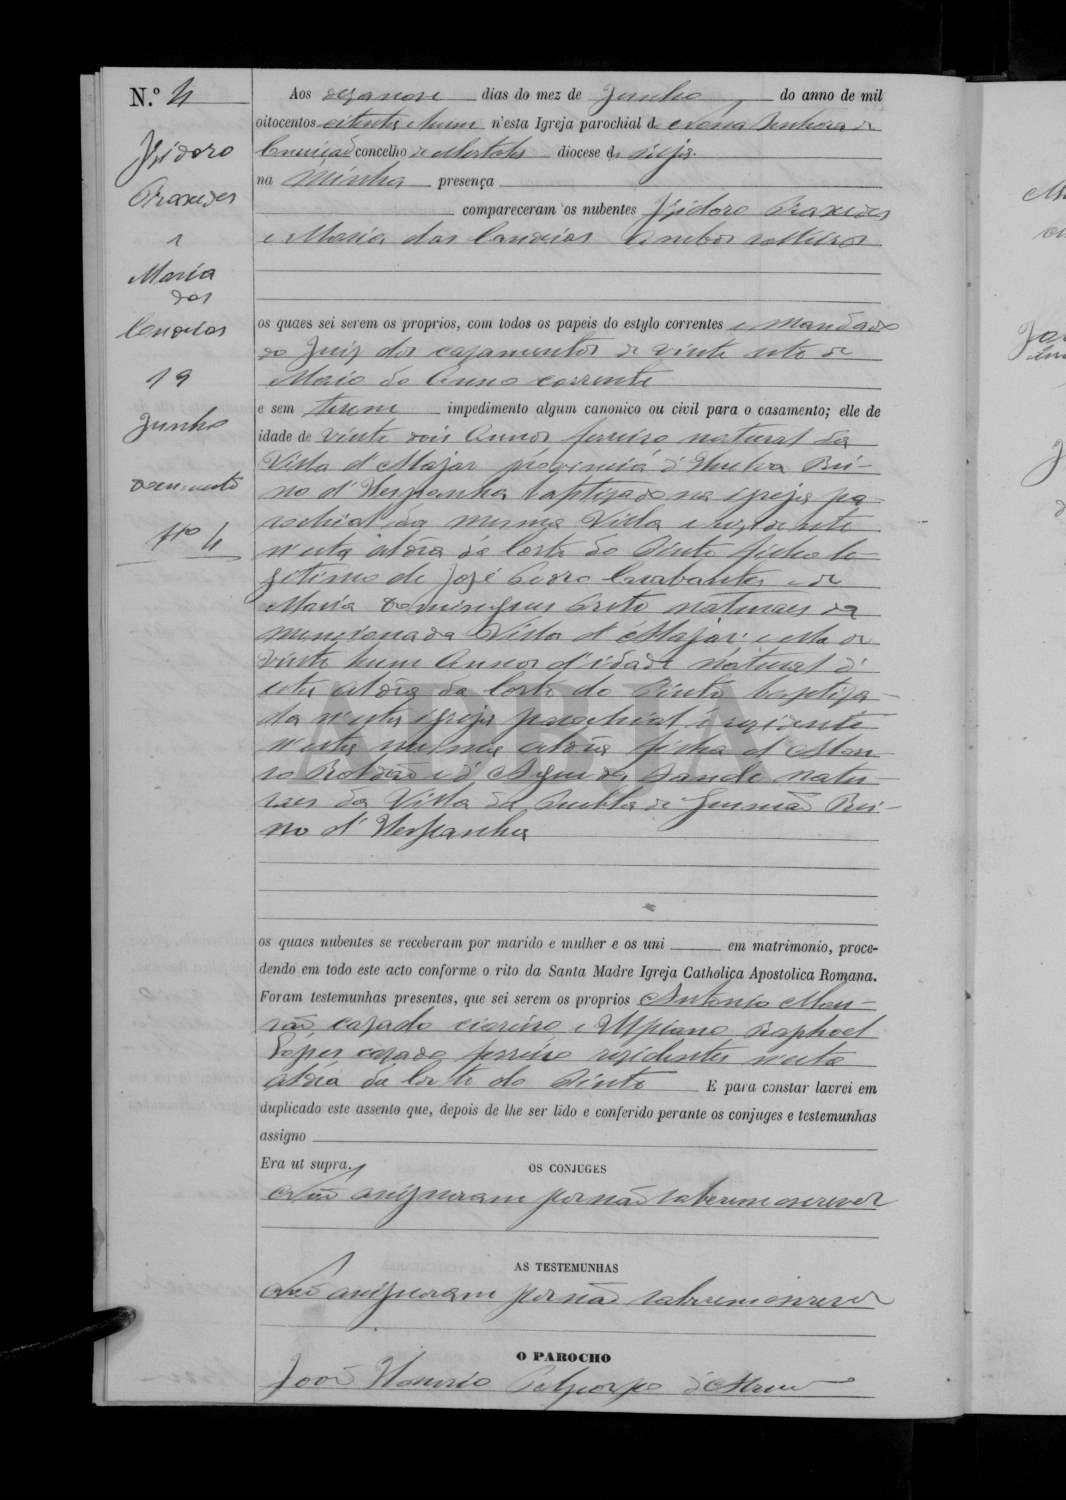 N.º 4
Isidoro
Praxedes
e
Maria
das
Candeias
19
Junho
documento
Nº 4
Aos desanove dias do mez de Junho do anno de mil
oitocentos oitenta e hum n'esta Igreja parochial de Nossa Senhora da
Conceição concelho de Mertola diocese de Beja
na Minha presença
compareceram os nubentes Isidoro Praxedes
e Maria das Candeias Ambos solteiros
os quaes sei serem os proprios, com todos os papeis do estylo correntes e Mandado
do Juiz dos cazamentos de vinte sete de
Maio do Anno corrente
e sem terem impedimento algum canonico ou civil para o casamento; elle de
idade de vinte dois Annos ferreiro natural da
Villa d' Majar provincia d' Huelva Rei-
no d' Hespanha baptizado na igreja pa-
rochial da mesma Villa e rezidente
n'esta aldêa da Corte do Pinto filho le-
gitimo de José Pedro e de
Maria Domingues Preto naturaes da
mencionada Villa d' Majar: e ella de
vinte hum Annos d'idade natural d'
esta aldêa da Corte do Pinto baptiza-
da n'esta igreja parochial e rezidente
n'esta mesma aldêa filha d'
e d' Agueda Sande natu-
raes da Villa da Puebla de Gusmão Rei-
no d' Hespanha
os quaes nubentes se receberam por marido e mulher e os uni em matrimonio, proce-
dendo em todo este acto conforme o rito da Santa Madre Igreja Catholica Apostolica Romana.
Foram testemunhas presentes, que sei serem os proprios Antonio
cazado e Ulpiano Raphael
Lopes cazado ferreiro rezidentes n'esta
aldêa da Corte do Pinto E para constar lavrei em
duplicado este assento que, depois de lhe ser lido e conferido perante os conjuges e testemunhas
assigno
Era ut supra.
OS CONJUGES
Não assignaram por não saberem escrever
AS TESTEMUNHAS
Não assignaram por não saberem escrever
O PAROCHO
João
ADBJA